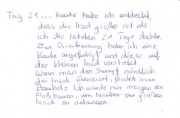 Tag 21... Heute habe ich entdeckt,
dass die Insel größer ist als
ich die letzten 21 Tage dachte.
Zur Orientierung habe ich eine
Karte angefertigt und diese auf
der kleinen Insel versteckt
Wenn man den Sumpf nördlich
der Insel überquert, findet man
Bauholz. Ich werde mir morgen ein
Floß bauen, um hinüber zur großen
Insel zu gelangen.